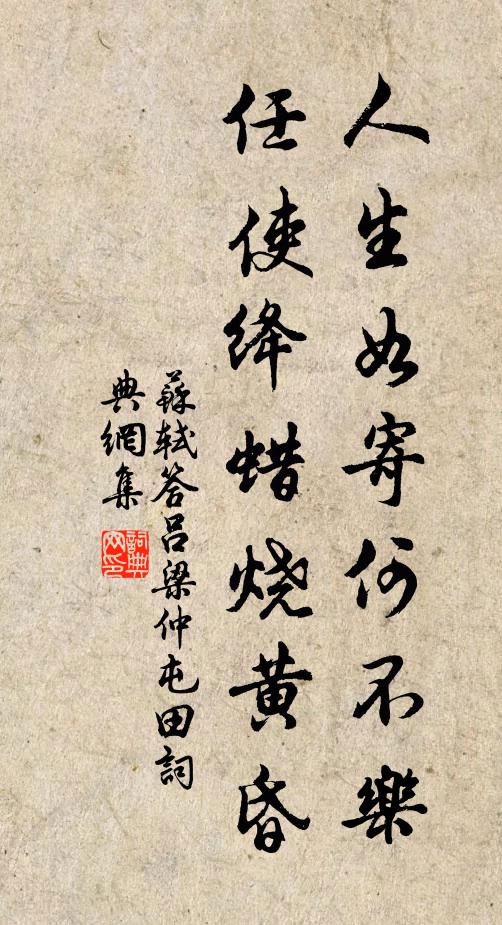 人生如寄何不樂
任使绛蜡烧黄昏
蘇軾答呂梁仲屯田詞
典網集
詞典
网印